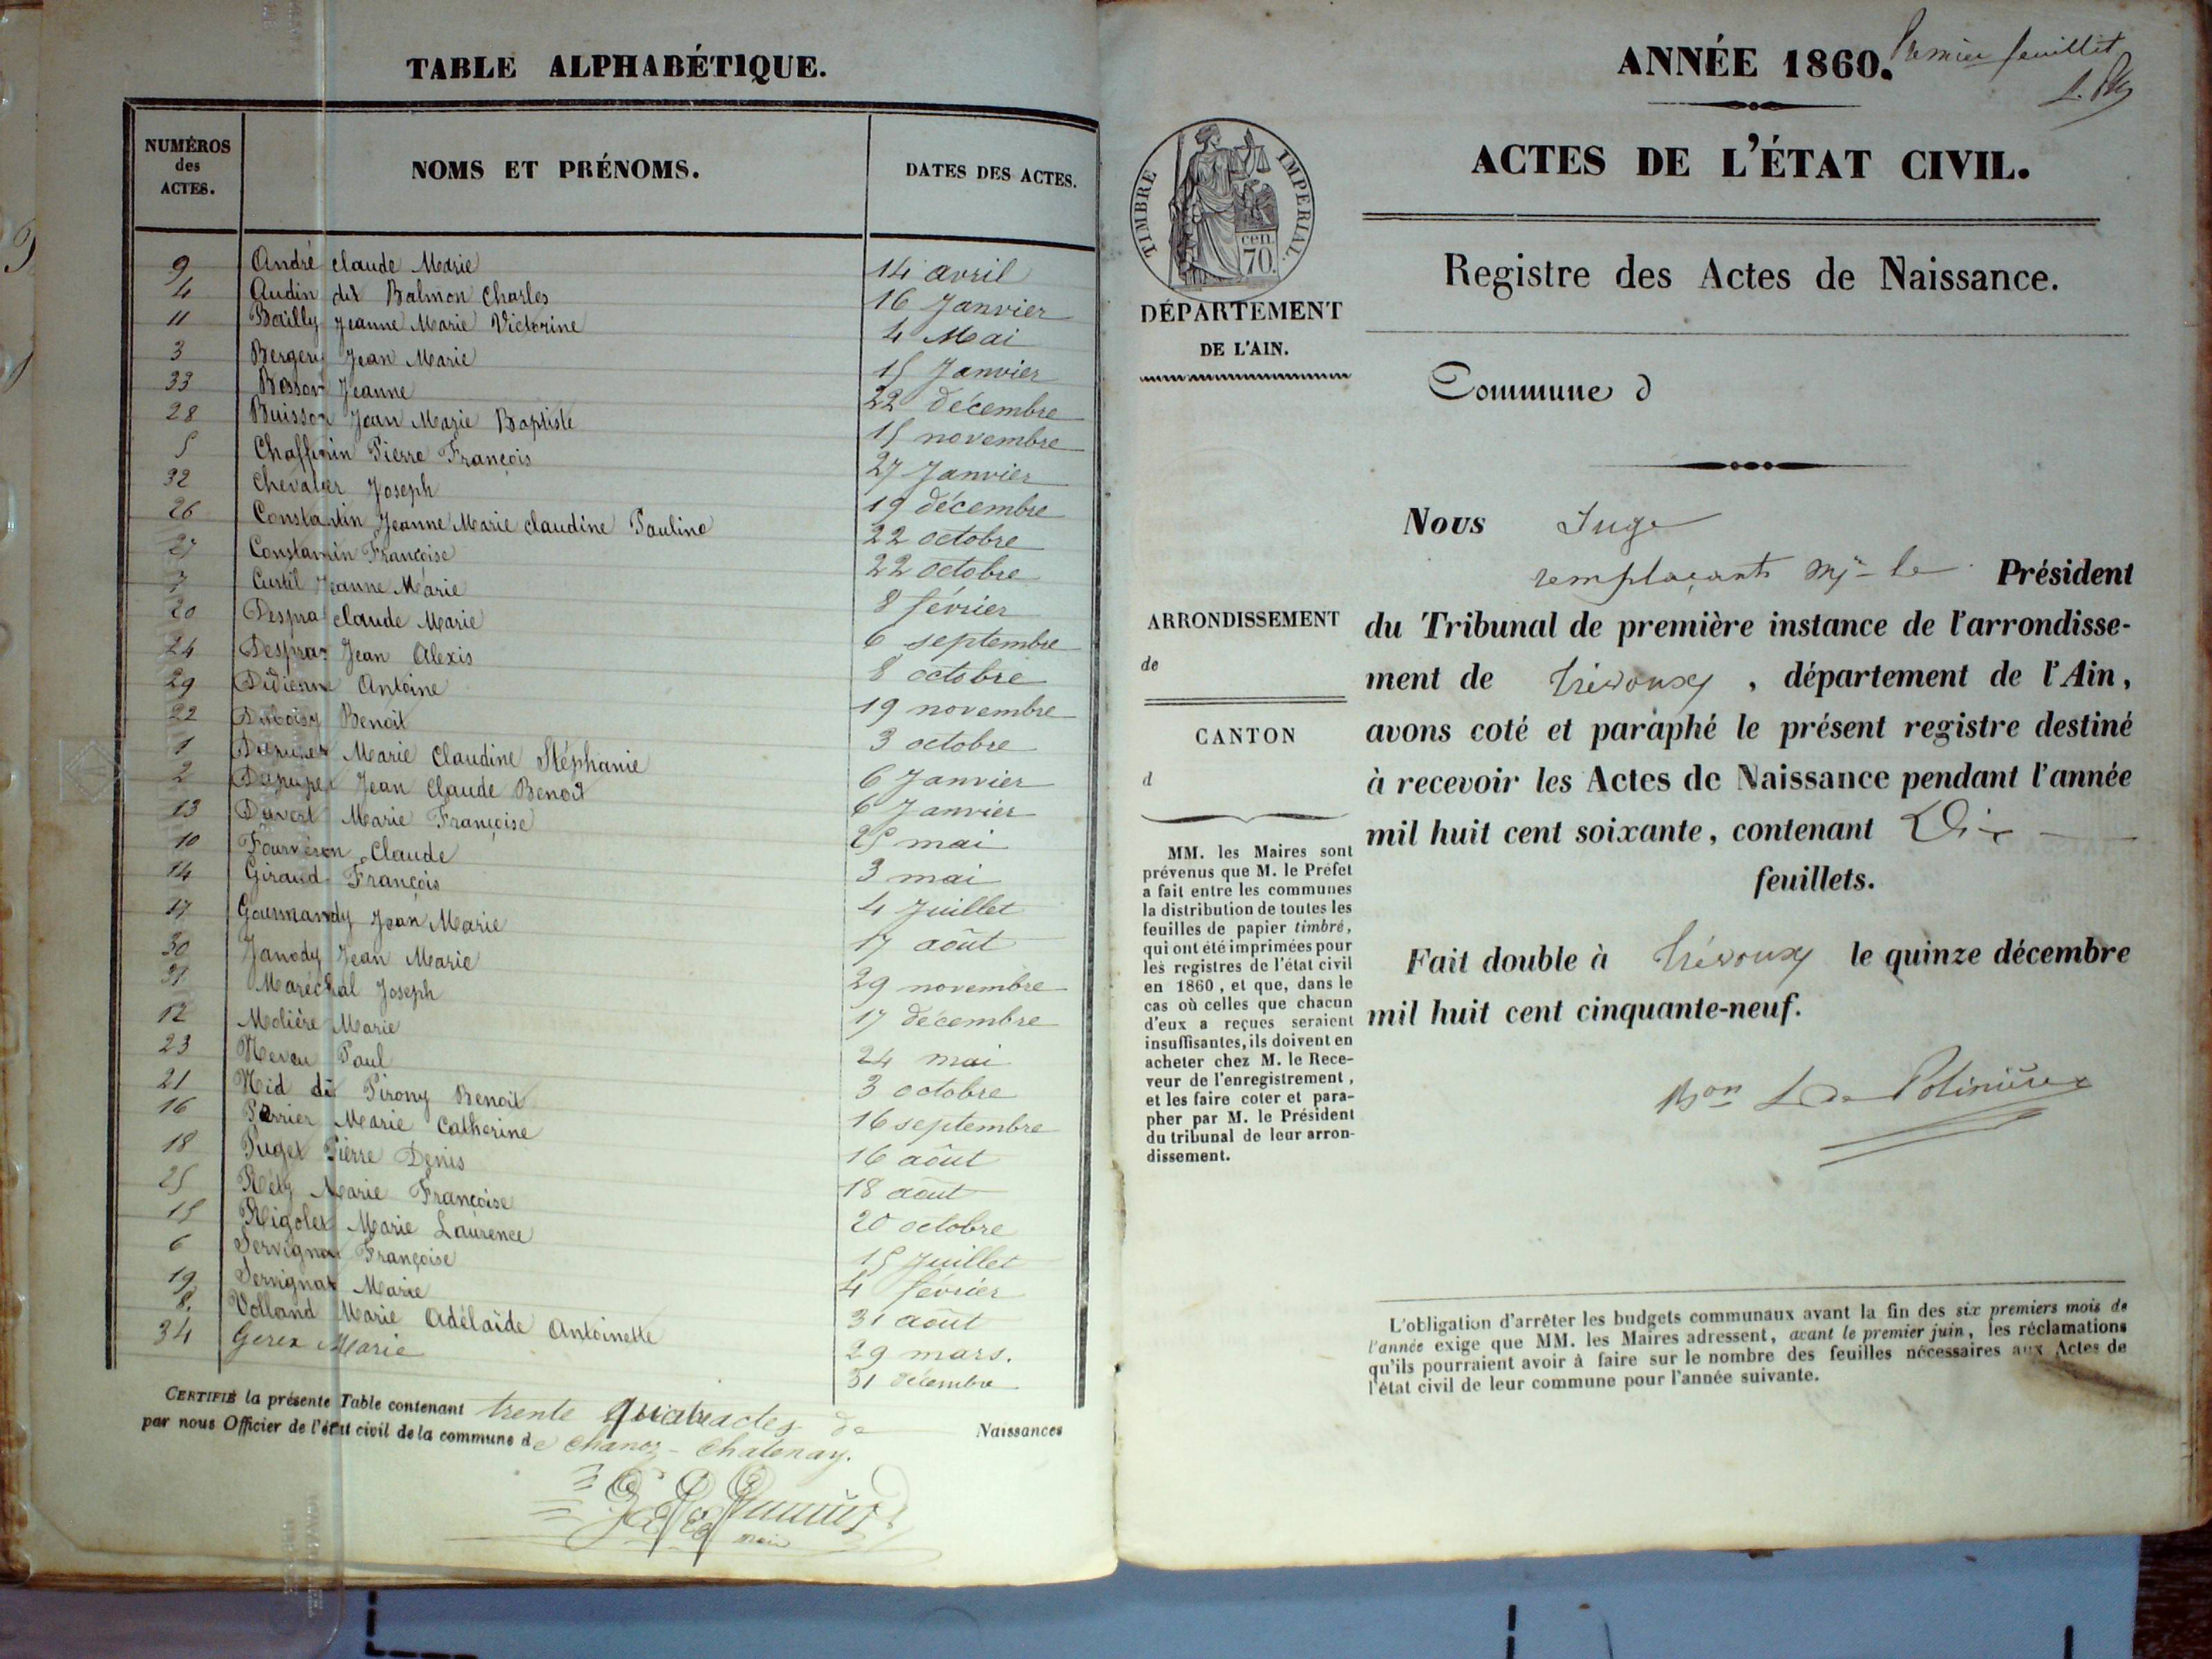 TABLE ALPHABÉTIQUE.
NUMÉROS
des
ACTES.
NOMS ET PRÉNOMS.
DATES DES ACTES.
9 André claude Marie 14 avril
4 Audin dit Balmon Charles 16 Janvier
11 Bailly Jeanne Marie Victorine 4 Mai
3 Bergery Jean Marie 15 Janvier
33 Besson Jeanne 22 décembre
28 Buisson Jean Marie Baptiste 15 novembre
5 Pierre François 27 Janvier
32 Chevalier Joseph 19 décembre
26 Constantin Jeanne Marie claudine Pauline 22 octobre
27 Constantin Françoise 22 octobre
7 Curtil Jeanne Marie 8 février
20 Despra claude Marie 6 septembre
24 Despraz Jean Alexis 8 octobre
29 Antoine 19 novembre
22 Benoit 3 octobre
1 Marie Claudine Stéphanie 6 Janvier
2 Jean Claude Benoit 6 Janvier
13 Duvert Marie Françoise 25 mai
10 Claude 3 mai
14 Giraud François 4 Juillet
17 Gourmandy Jean Marie 17 août
30 Janody Jean Marie 29 novembre
31 Maréchal Joseph 17 décembre
12 Molière Marie 24 mai
23 Neveu Paul 3 octobre
21 Nid dit Pirony Benoit 16 septembre
16 Perrier Marie Catherine 16 août
18 Puget Pierre Denis 18 août
25 Réty Marie Françoise 20 octobre
15 Rigolet Marie Laurence 15 Juillet
6 Servignat Françoise 4 février
19 Servignat Marie 31 août
8. Volland Marie Adélaïde Antoinette 29 mars.
34 Gerex Marie 31 décembre
CERTIFIÉ la présente Table contenant trente quatre actes de Naissances
par nous Officier de l'état civil de la commune de Chanoz-Chatenay.
ANNÉE 1860.
Premier feuillet
ACTES DE L'ÉTAT CIVIL.
TIMBRE IMPERIAL.
cen.
70.
Registre des Actes de Naissance.
DÉPARTEMENT
DE L'AIN.
Commune d
Nous Juge
remplaçant Mr le Président
ARRONDISSEMENT
de
CANTON
d
du Tribunal de première instance de l'arrondisse-
ment de Trévoux, département de l'Ain,
avons coté et paraphé le présent registre destiné
à recevoir les Actes de Naissance pendant l'année
mil huit cent soixante, contenant Dix
feuillets.
Fait double à Trévoux le quinze décembre
mil huit cent cinquante-neuf.
Bon L De Polinière
MM. les Maires sont
prévenus que M. le Préfet
a fait entre les communes
la distribution de toutes les
feuilles de papier timbré,
qui ont été imprimées pour
les registres de l'état civil
en 1860, et que, dans le
cas où celles que chacun
d'eux a reçues seraient
insuffisantes, ils doivent en
acheter chez M. le Rece-
veur de l'enregistrement,
et les faire coter et para-
pher par M. le Président
du tribunal de leur arron-
dissement.
L'obligation d'arrêter les budgets communaux avant la fin des six premiers mois de
l'année exige que MM. les Maires adressent, avant le premier juin, les réclamations
qu'ils pourraient avoir à faire sur le nombre des feuilles nécessaires aux Actes de
l'état civil de leur commune pour l'année suivante.